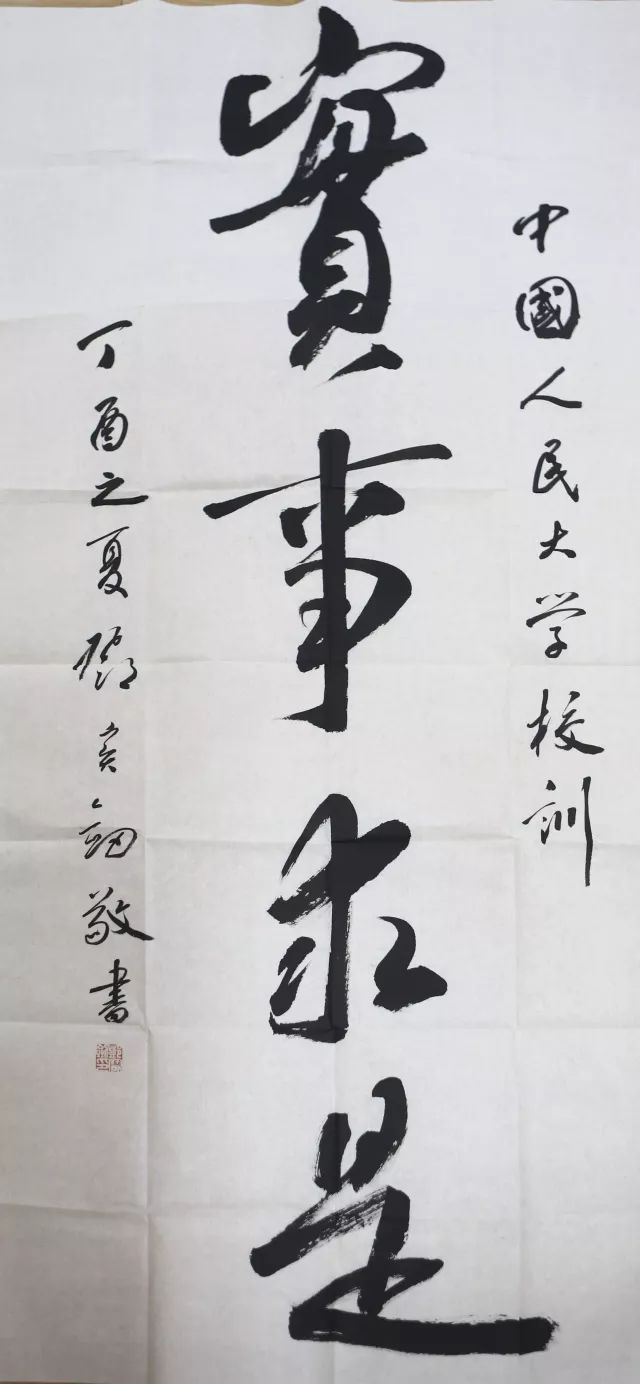 中國人民大学校训
實事求是
丁酉之夏 敬書